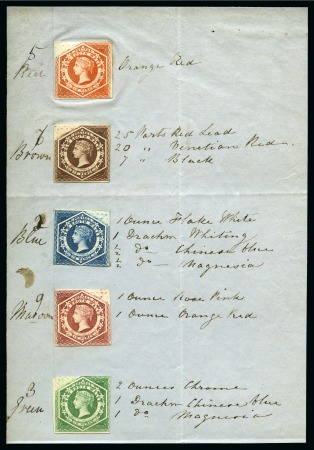 5
Red Orange Red
6 25 Parts Red Lead
Brown 20 " Venetian Red
7 " Black
2 1 Ounce Flake White
Blue 1 Drachm Whiting
1/2 do Chinese blue
1/2 do Magnesia
9 1 Ounce Rose Pink
Maroon 1 Ounce Orange Red
3 2 Ounces Chrome
Green 1 Drachm Chinese blue
1 do Magnesia